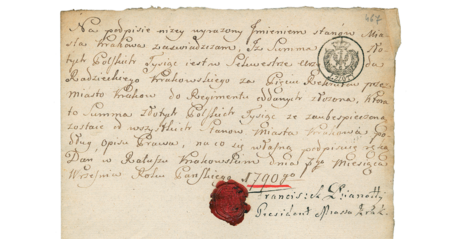 467
Na podpisie niżey wyrażony Imieniem Stanow Mia-
sta Krakowa zaświadczam, Iż Summa Zło-
tych Polskich Tysiąc iest w Sekwestrze Urzędu
Radzieckiego Krakowskiego za Pięciu Rekrutow przez
Miasto Krakow do Regimentu oddanych złożona, ktora
to Summa Złotych Polskich Tysiąc ze zabespieczona
zostaie od wszystkich Stanow Miasta Krakowa po-
dług Opisu Prawa, na co się własną podpisuię ręką
Dan w Ratuszu Krakowskim dnia Miesiąca
Września Roku Pańskiego 1790go
Franciszek Lianotty
Prezident Miasta